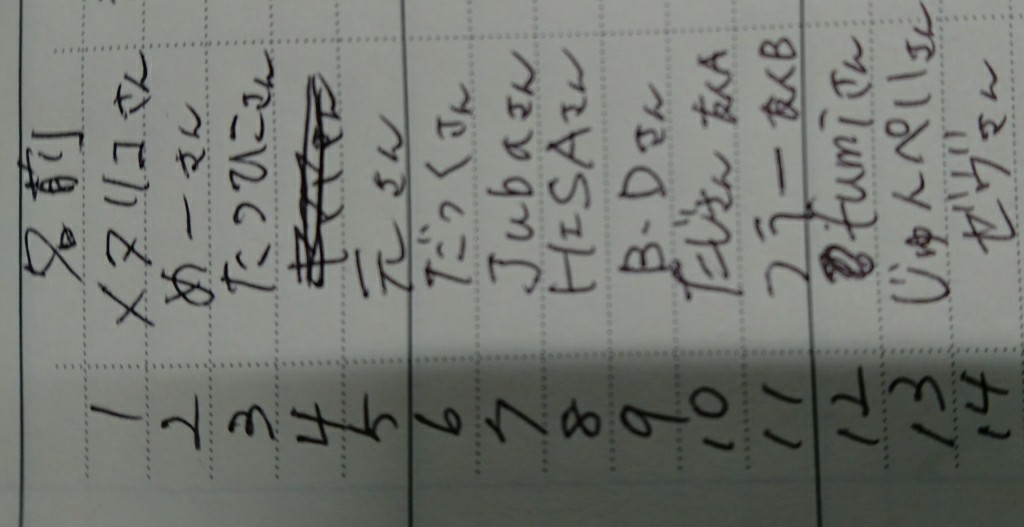 名前
1 メタリコさん
2 めーさん
3 たつひこさん
4
5 元さん
6 だっくさん
7 Jubaさん
8 HISAさん
9 B-Dさん
10 たじさん 友人A
11 フラー 友人B
12 fumiさん
13 じゅんぺいさん
14 ゼウさん